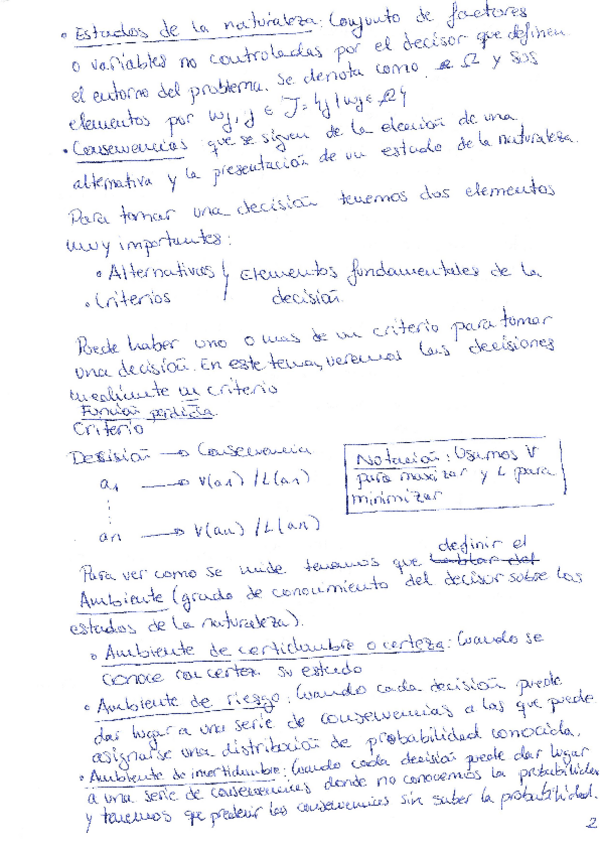 • Estados de la naturaleza: Conjunto de factores
o variables no controladas por el decisor que definen
el entorno del problema. Se denota como Ω y sus
elementos por wj, j ∈ J = {j / wj ∈ Ω}
• Consecuencias que se siguen de la elección de una
alternativa y la presentación de un estado de la naturaleza.
Para tomar una decisión tenemos dos elementos
muy importantes:
• Alternativas } Elementos fundamentales de la
• Criterios decisión
Puede haber uno o mas de un criterio para tomar
una decisión. En este tema, veremos las decisiones
mediante un criterio
Función perdida
Criterio
Decisión → Consecuencia
a1 → V(a1) / L(a1)
⋮
an → V(an) / L(an)
Notación: Usamos V
para maxizar y L para
minimizar
Para ver como se mide tenemos que definir el
Ambiente (grado de conocimiento del decisor sobre los
estados de la naturaleza).
• Ambiente de certidumbre o certeza: Cuando se
conoce con certeza su estado
• Ambiente de riesgo: Cuando cada decisión puede
dar lugar a una serie de consecuencias a las que puede
asignarse una distribución de probabilidad conocida.
• Ambiente de incertidumbre: Cuando cada decisión puede dar lugar
a una serie de consecuencias donde no conocemos la probabilidad
y tenemos que predecir las consecuencias sin saber la probabilidad.
2